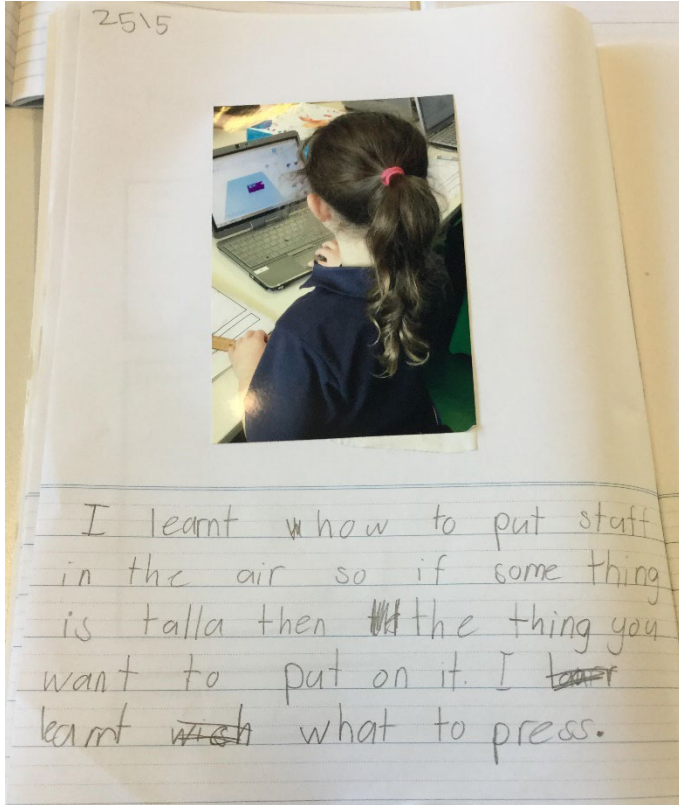 25\5
I learnt how to put staff
in the air so if some thing
is talla then the thing you
want to put on it. I
learnt what to press.